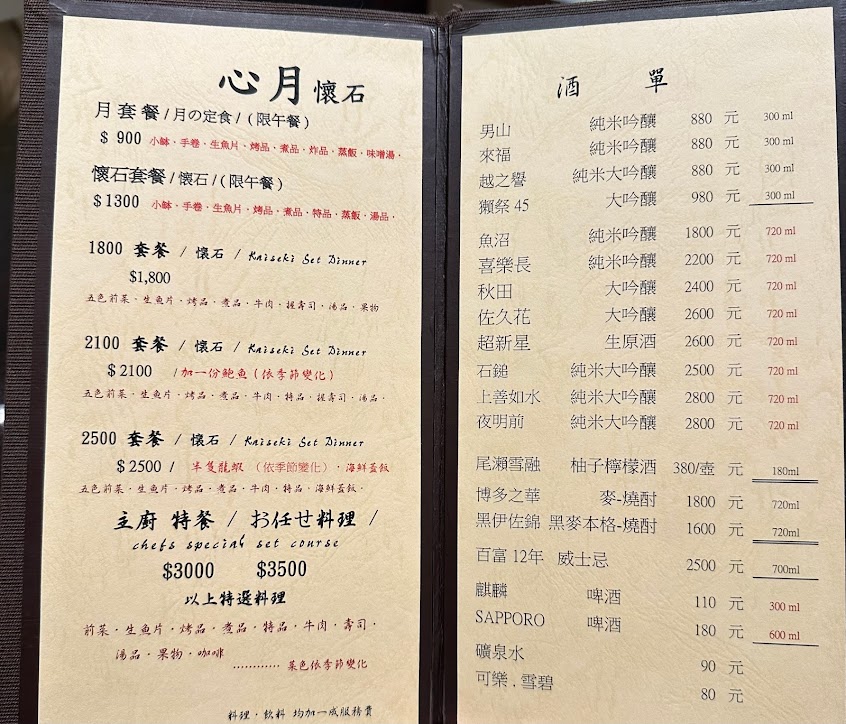 心月懷石
月套餐/月の定食/(限午餐)
$ 900 小缽．手卷．生魚片．烤品．煮品．炸品．蒸飯．味噌湯．
懷石套餐/懷石/(限午餐)
$1300 小缽．手卷．生魚片．烤品．煮品．特品．蒸飯．湯品．
1800 套餐 / 懷石 / Kaiseki Set Dinner
$1,800
五色前菜．生魚片．烤品．煮品．牛肉．握壽司．湯品．果物
2100 套餐 / 懷石 / Kaiseki Set Dinner
$2100 /加一份鮑魚(依季節變化)
五色前菜．生魚片．烤品．煮品．牛肉．特品．握壽司．湯品．
2500 套餐 / 懷石 / Kaiseki Set Dinner
$2500 / 半隻龍蝦 (依季節變化)．海鮮蓋飯
五色前菜．生魚片．烤品．煮品．牛肉．特品．海鮮蓋飯．
主廚 特餐 / お任せ料理 /
chefs special set course
$3000 $3500
以上特選料理
前菜．生魚片．烤品．煮品．特品．牛肉．壽司．
湯品．果物．咖啡
............ 菜色依季節變化
料理．飲料 均加一成服務費
酒 單
男山 純米吟釀 880 元 300 ml
來福 純米吟釀 880 元 300 ml
越之譽 純米大吟釀 880 元 300 ml
獺祭 45 大吟釀 980 元 300 ml
魚沼 純米吟釀 1800 元 720 ml
喜樂長 純米吟釀 2200 元 720 ml
秋田 大吟釀 2400 元 720 ml
佐久花 大吟釀 2600 元 720 ml
超新星 生原酒 2600 元 720 ml
石鎚 純米大吟釀 2500 元 720 ml
上善如水 純米大吟釀 2800 元 720 ml
夜明前 純米大吟釀 2800 元 720 ml
尾瀨雪融 柚子檸檬酒 380/壺 元 180ml
博多之華 麥-燒酎 1800 元 720ml
黑伊佐錦 黑麥本格-燒酎 1600 元 720ml
百富 12年 威士忌 2500 元 700ml
麒麟 啤酒 110 元 300 ml
SAPPORO 啤酒 180 元 600 ml
礦泉水 90 元
可樂 . 雪碧 80 元